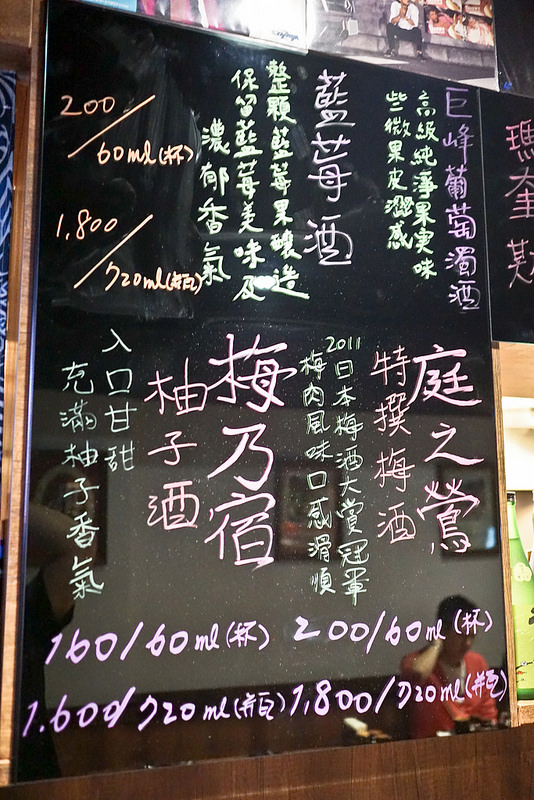 巨峰葡萄濁酒
高級純淨果実味
些微果皮澀感
藍莓酒
整顆藍莓果釀造
保留藍莓美味及
濃郁香氣
200/60ml(杯)
1,800/720ml(瓶)
庭之鶯
特撰梅酒
2011日本梅酒大賞冠軍
梅肉風味口感滑順
200/60ml(杯)
1,800/720ml(瓶)
梅乃宿
柚子酒
入口甘甜
充滿柚子香氣
160/60ml(杯)
1.600/720ml(瓶)